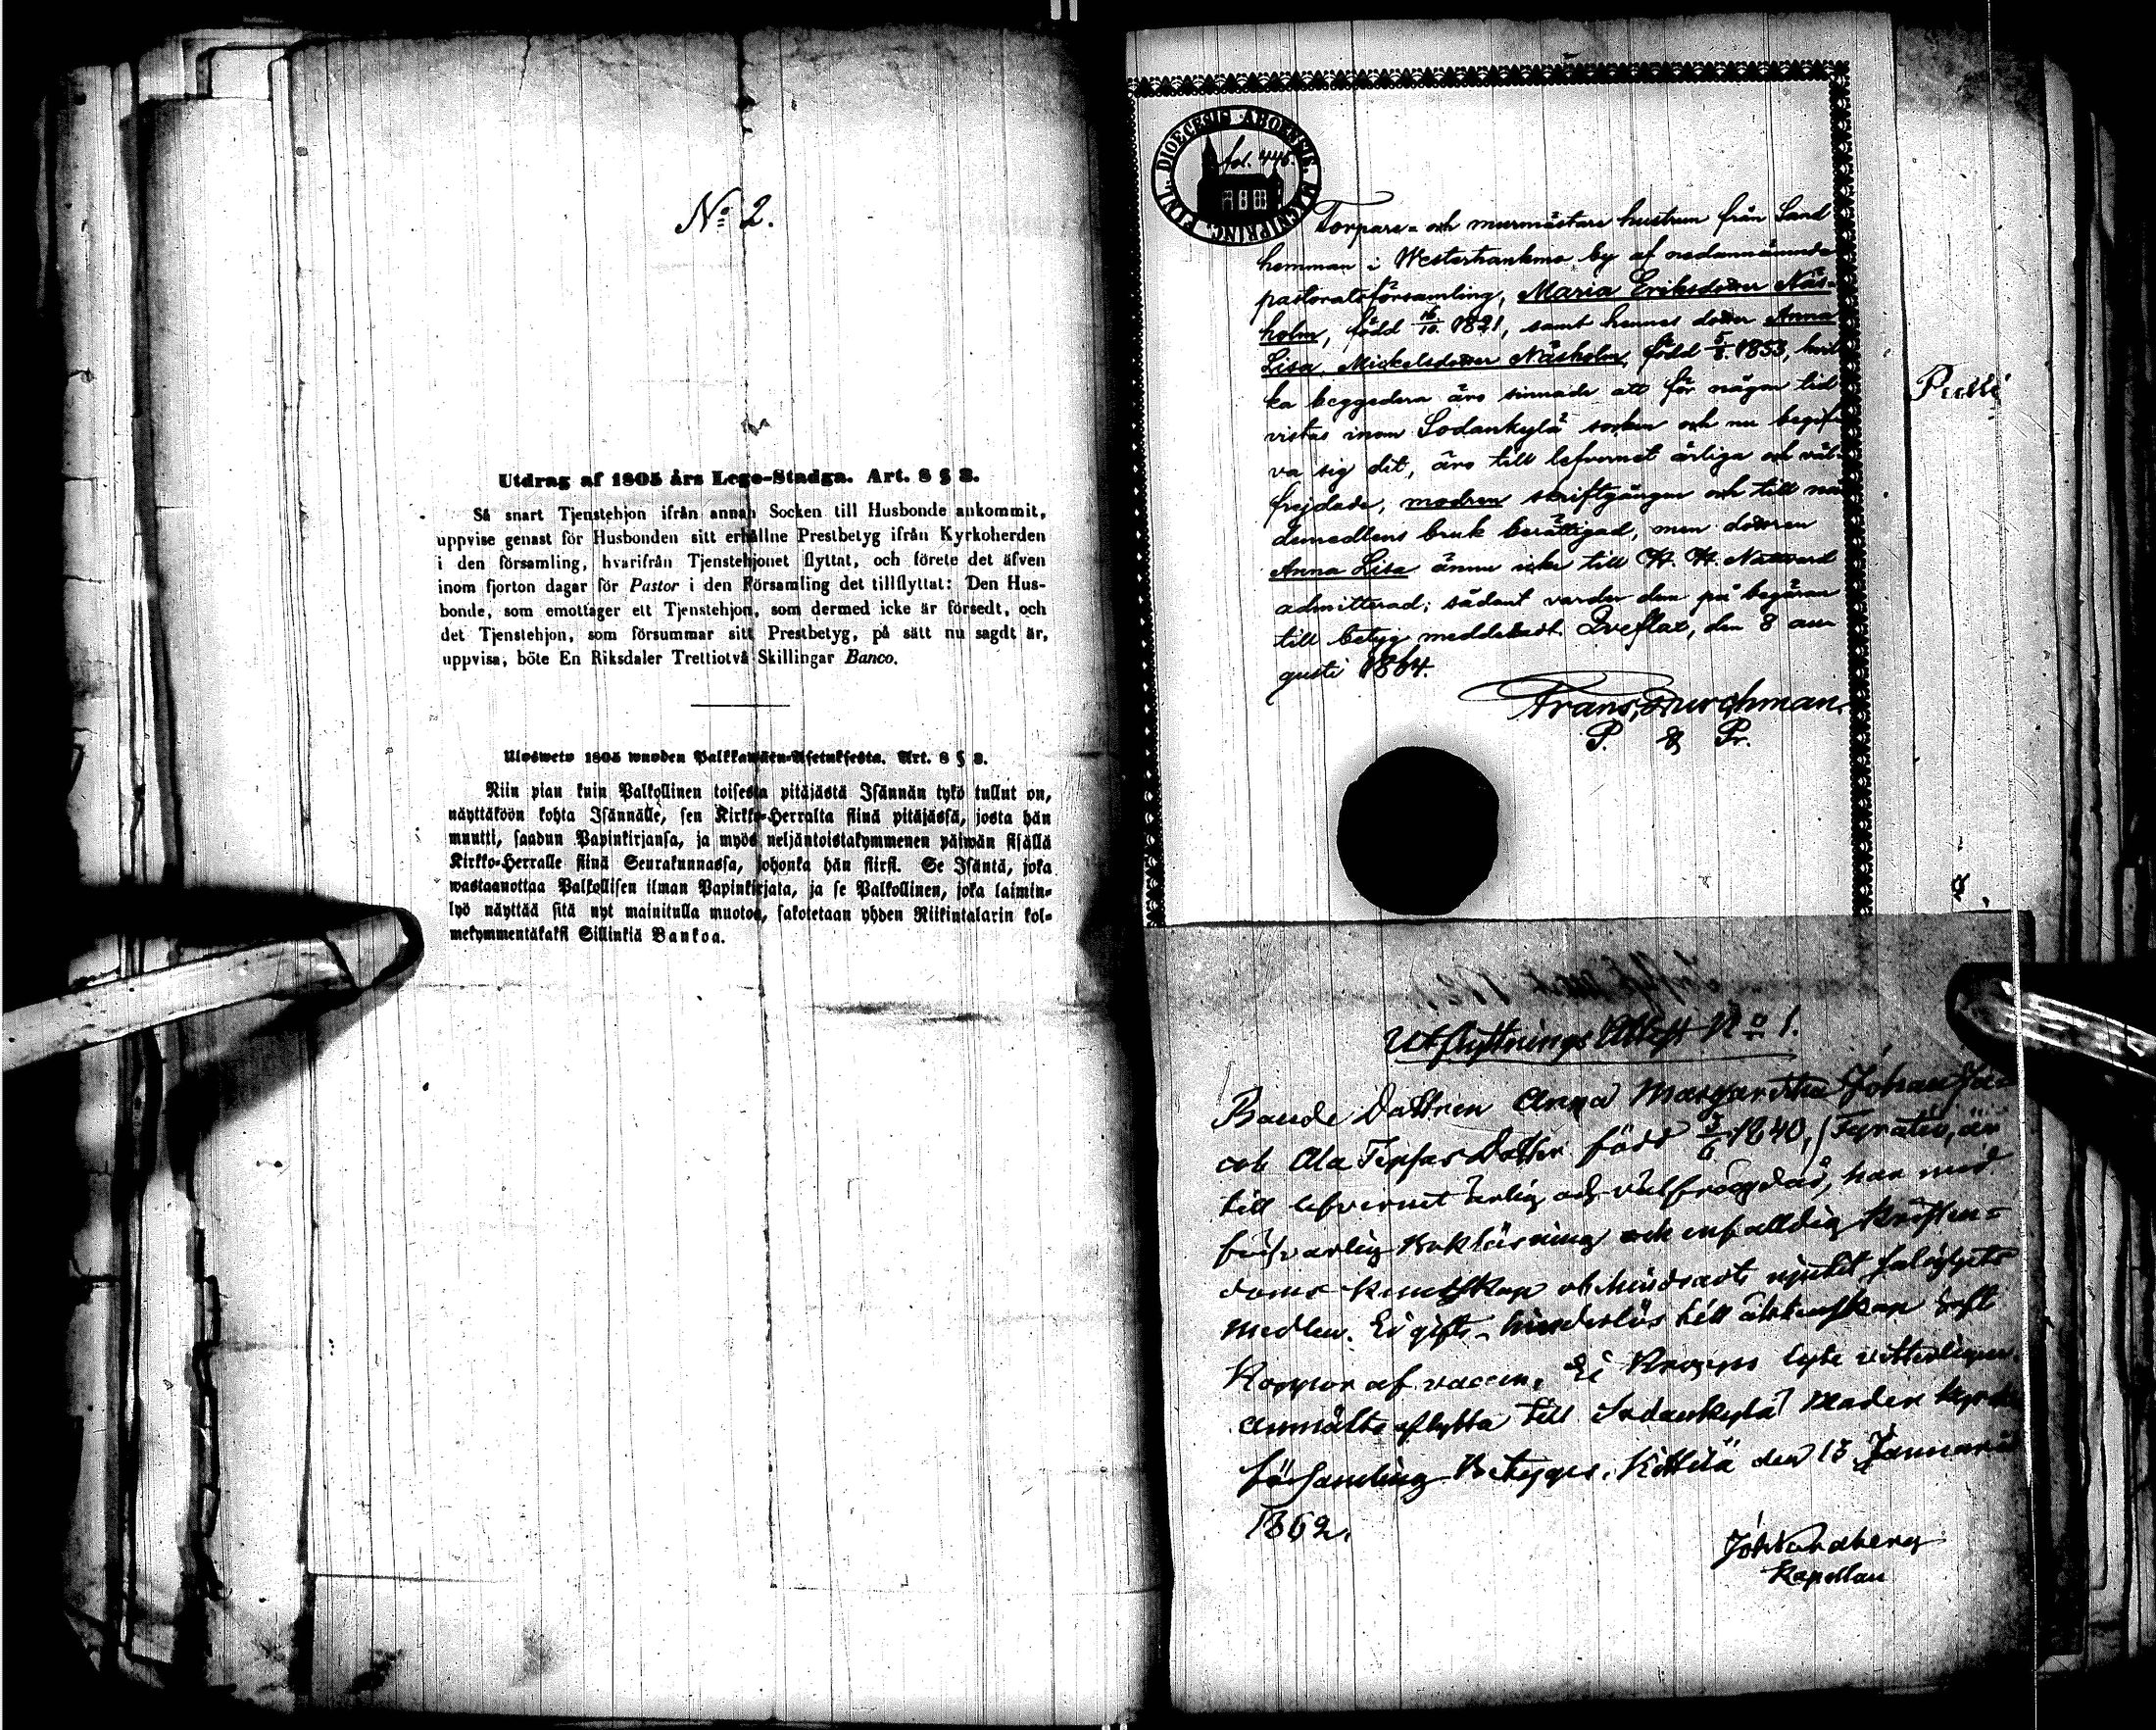 No 2.
Utdrag af 1805 års Lego-Stadga. Art. 8 § 3.
Så snart Tjenstehjon ifrån annan Socken till Husbonde ankommit,
uppvise genast för Husbonden sitt erhållne Prestbetyg ifrån Kyrkoherden
i den församling, hvarifrån Tjenstehjonet flyttat, och förete det äfven
inom fjorton dagar för Pastor i den Församling det tillflyttat: Den Hus-
bonde, som emottager ett Tjenstehjon, som dermed icke är försedt, och
det Tjenstehjon, som försummar sitt Prestbetyg, på sätt nu sagdt är,
uppvisa, böte En Riksdaler Trettiotvå Skillingar Banco.
Ulosweto 1805 wuoden Palkkawäen-Asetuksesta. Art. 8 § 3.
Niin pian kuin Palkollinen toisesta pitäjästä Isännän tykö tullut on,
näyttäköön kohta Isännälle, sen Kirkko-Herralta siinä pitäjässä, josta hän
muutti, saadun Papinkirjansa, ja myös neljäntoistakymmenen päiwän sisällä
Kirkko-Herralle siinä Seurakunnassa, johonka hän siirsi. Se Isäntä, joka
wastaanottaa Palkollisen ilman Papinkirjata, ja se Palkollinen, joka laimin-
lyö näyttää sitä nyt mainitulla muotoa, sakotetaan yhden Riikintalarin kol-
mekymmentäkaksi Sillinkiä Bankoa.
FINL. DIOECESIS ABOENSIS MAGNI PRINC.
fol. 446.
Torpare- och murmästare hustrun från Sand
hemman i Westerhankmo by af nedannämnde
pastoratsförsamling, Maria Eriksdotter Näs-
holm, född 16/10 1821, samt hennes dotter Anna
Lisa Mickelsdotter Näsholm, född 5/8 1853, hvil
ka beggedera äro sinnade att för någon tid
vistas inom Sodankylä socken och nu begif
va sig dit, äro till lefvernet ärliga och väl-
frejdade, modren skriftgången och till nå
demedlens bruk berättigad, men dottren
Anna Lisa ännu icke till H. H. Nattvard
admitterad; sådant varder dem på begäran
till betyg meddeladt. Qveflax, den 8 au
gusti 1864.
Frans Durchman.
P. & Pr.
Utflyttnings Attest No 1.
Bonde Dottren Anna Margaretha Johan
och Ala Dotter född 3/6 1840, är
till lefvernet ärlig och välfrägdad, har med
försvarlig Bokläsning och enfalldig kristen=
doms kunskap obehindradt njutit salighets
medlen. Ei gift, hinderlös till äktenskap haft
Koppor af vaccin. Ei Kropps lyte vitterligen.
Anmälte flytta till Sodankylä Moder Kyrko
församling Betyges. Kittilä den 13 Januarii
1862.
Joh Nordberg
Kapellan